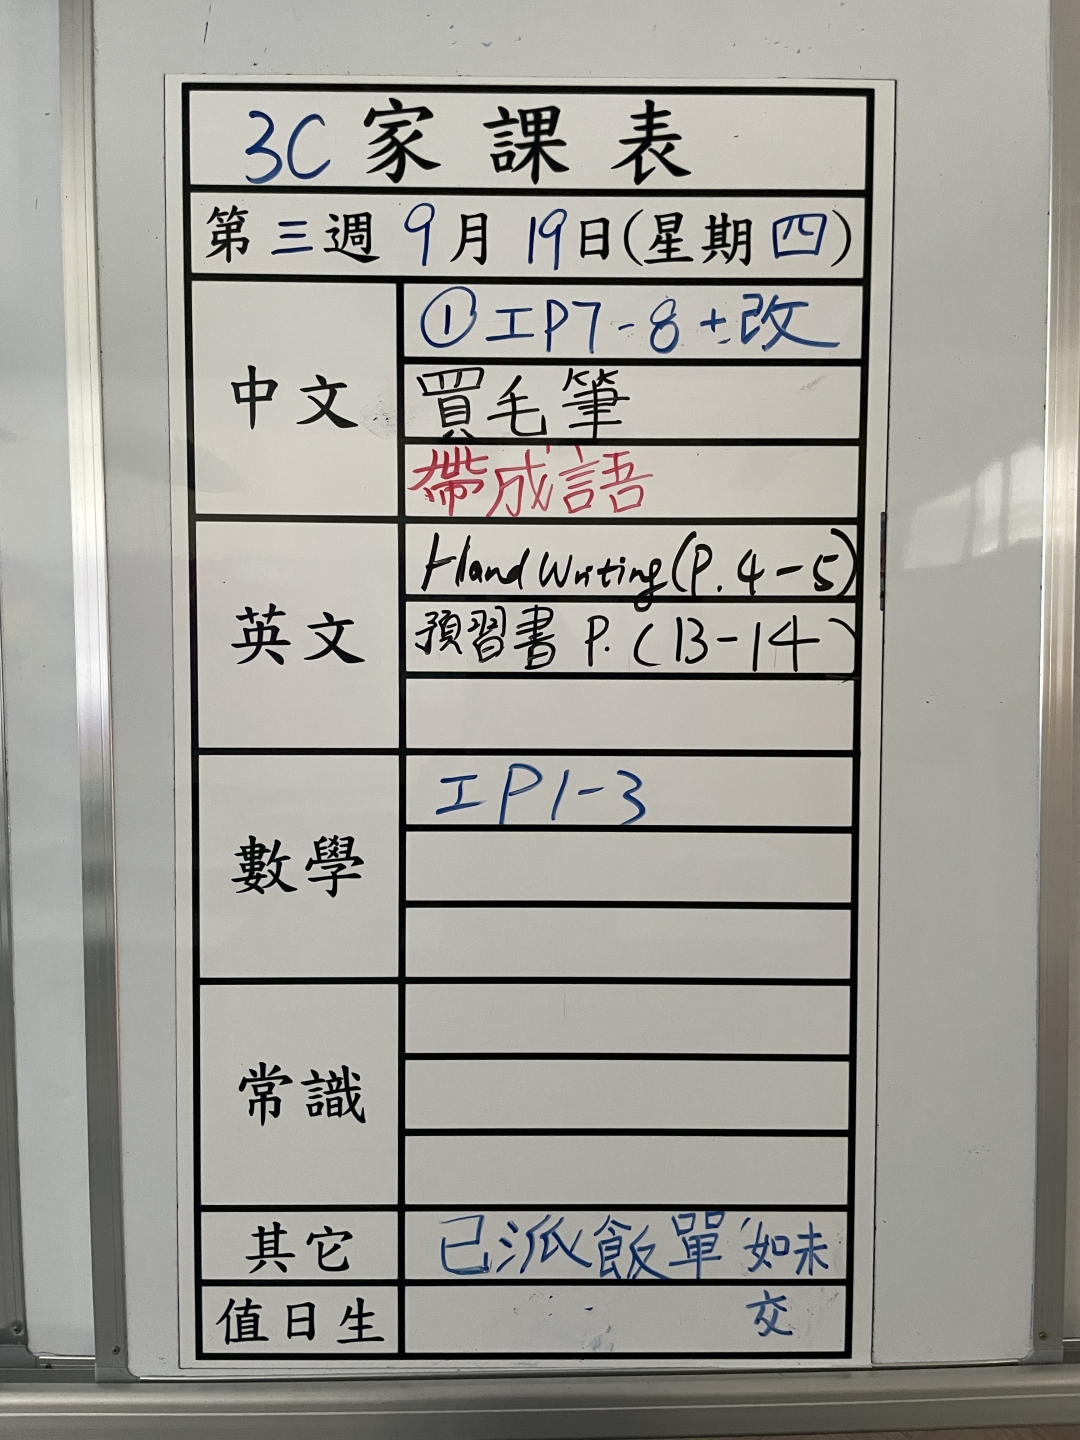 3C家課表
第三週9月19日(星期四)
中文
①工P7-8+改
買毛筆
帶成語
英文
HandWriting(P.4-5)
預習書 P.(13-14)
數學
工P1-3
常識
其它
已派飯單,如未
交
值日生